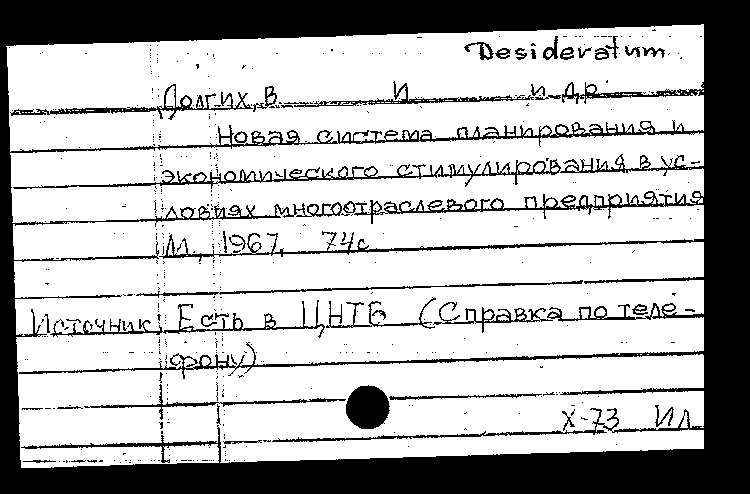 Desideratum
Долгих, В И и др
Новая система планирования и
экономического стимулирования в ус-
ловиях многоотраслевого предприятия
М., 1967, 74с
Источник: Есть в ЦНТБ (Справка по теле-
фону)
X-73 Ил